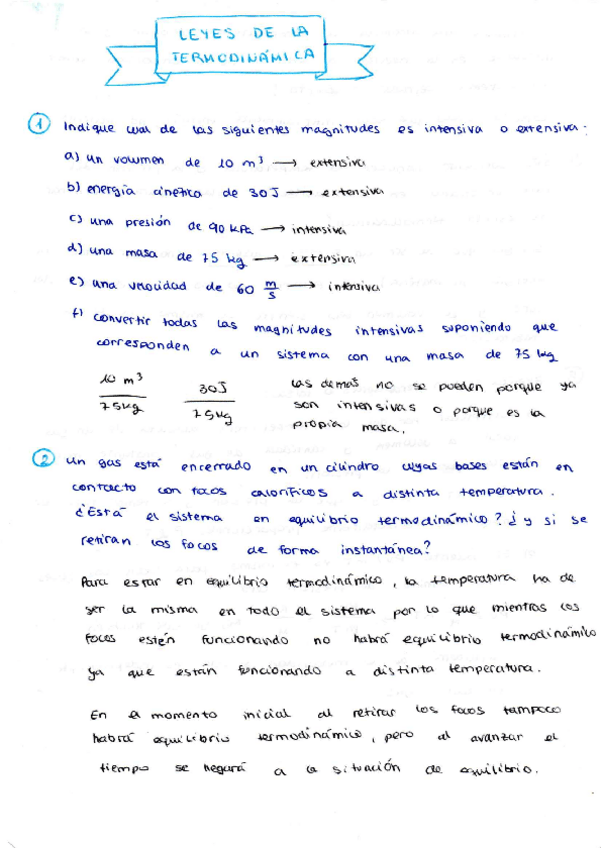 LEYES DE LA
TERMODINÁMICA
1 Indique cual de las siguientes magnitudes es intensiva o extensiva.
a) un volumen de 10 m³ → extensiva
b) energía cinética de 30J → extensiva
c) una presión de 90 kPa → intensiva
d) una masa de 75 kg → extensiva
e) una velocidad de 60 m/s → intensiva
f) convertir todas las magnitudes intensivas suponiendo que
corresponden a un sistema con una masa de 75 kg
10 m³ / 75kg
30J / 75kg
las demás no se pueden porque ya
son intensivas o porque es la
propia masa.
2 un gas está encerrado en un cilindro cuyas bases están en
contacto con focos caloríficos a distinta temperatura.
¿Está el sistema en equilibrio termodinámico? ¿y si se
retiran los focos de forma instantánea?
Para estar en equilibrio termodinámico, la temperatura ha de
ser la misma en todo el sistema por lo que mientras los
focos estén funcionando no habrá equilibrio termodinámico
ya que están funcionando a distinta temperatura.
En el momento inicial al retirar los focos tampoco
habrá equilibrio termodinámico, pero al avanzar el
tiempo se llegará a la situación de equilibrio.